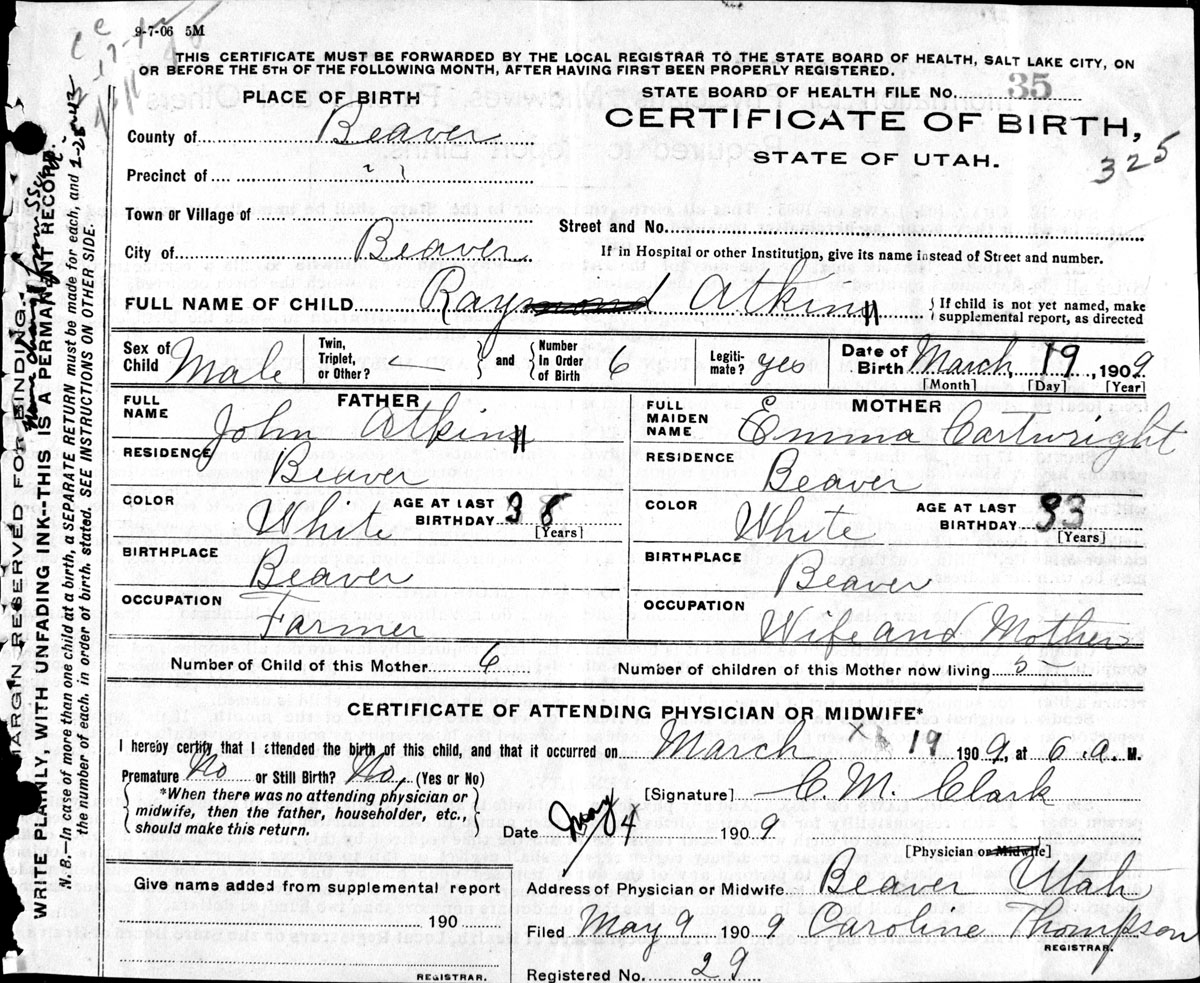 9-7-06 5M
THIS CERTIFICATE MUST BE FORWARDED BY THE LOCAL REGISTRAR TO THE STATE BOARD OF HEALTH, SALT LAKE CITY, ON
OR BEFORE THE 5TH OF THE FOLLOWING MONTH, AFTER HAVING FIRST BEEN PROPERLY REGISTERED.
PLACE OF BIRTH
STATE BOARD OF HEALTH FILE NO. 35
County of Beaver
CERTIFICATE OF BIRTH,
STATE OF UTAH.
325
Precinct of " "
Town or Village of
Street and No.
City of Beaver
If in Hospital or other Institution, give its name instead of Street and number.
FULL NAME OF CHILD Raymond Atkin
{ If child is not yet named, make
supplemental report, as directed
Sex of Child Male
Twin, Triplet, or Other?
and { Number In Order of Birth 6
Legiti-mate? yes
Date of Birth March 19, 1909
[Month] [Day] [Year]
FATHER
FULL NAME John Atkin
RESIDENCE Beaver
COLOR White
AGE AT LAST BIRTHDAY 38
[Years]
BIRTHPLACE Beaver
OCCUPATION Farmer
MOTHER
FULL MAIDEN NAME Emma Cartwright
RESIDENCE Beaver
COLOR White
AGE AT LAST BIRTHDAY 33
[Years]
BIRTHPLACE Beaver
OCCUPATION Wife and Mother
Number of Child of this Mother 6
Number of children of this Mother now living 5
CERTIFICATE OF ATTENDING PHYSICIAN OR MIDWIFE*
I hereby certify that I attended the birth of this child, and that it occurred on March 19 1909, at 6 a. M.
Premature No or Still Birth? No, (Yes or No)
{ *When there was no attending physician or
midwife, then the father, householder, etc.,
should make this return. }
[Signature] C. M. Clark
Date May 4 1909
[Physician or Midwife]
Give name added from supplemental report
190
REGISTRAR.
Address of Physician or Midwife Beaver Utah
Filed May 9 1909 Caroline Thompson
REGISTRAR.
Registered No. 29
MARGIN RESERVED FOR BINDING.
WRITE PLAINLY, WITH UNFADING INK--THIS IS A PERMANENT RECORD.
N. B.—In case of more than one child at a birth, a SEPARATE RETURN must be made for each, and
the number of each, in order of birth, stated. SEE INSTRUCTIONS ON OTHER SIDE.